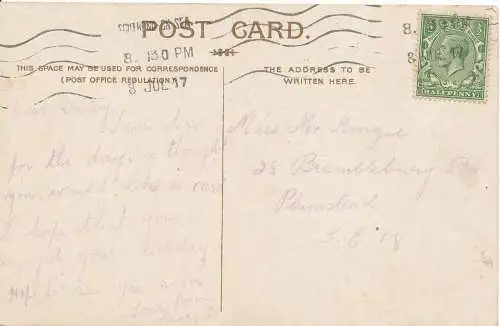 POST CARD.
8. 130 PM
8 JUL 17
THIS SPACE MAY BE USED FOR CORRESPONDENCE
(POST OFFICE REGULATION.)
THE ADDRESS TO BE
WRITTEN HERE.
HALFPENNY
I am here
for the day, & thought
you would like a card
I hope that you
your holiday
you soon
Love from
Miss
28 Bramblebury Rd
Plumstead
S.E. 18